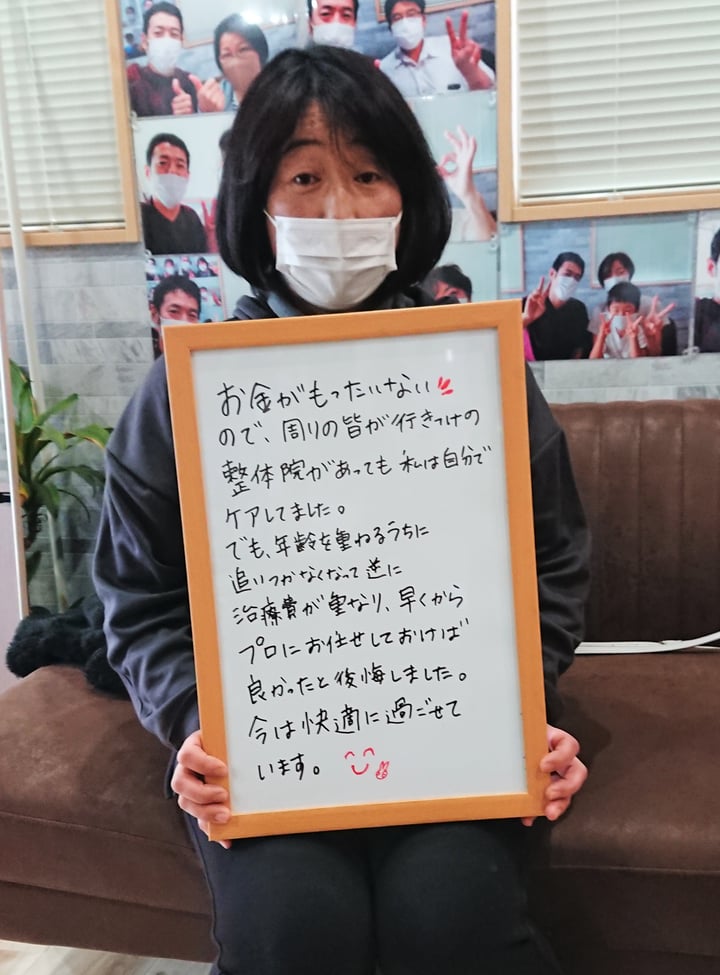 お金がもったいない
ので、周りの皆が行きつけの
整体院があっても私は自分で
ケアしてました。
でも、年齢を重ねるうちに
追いつかなくなって逆に
治療費が重なり、早くから
プロにお任せしておけば
良かったと後悔しました。
今は快適に過ごせて
います。